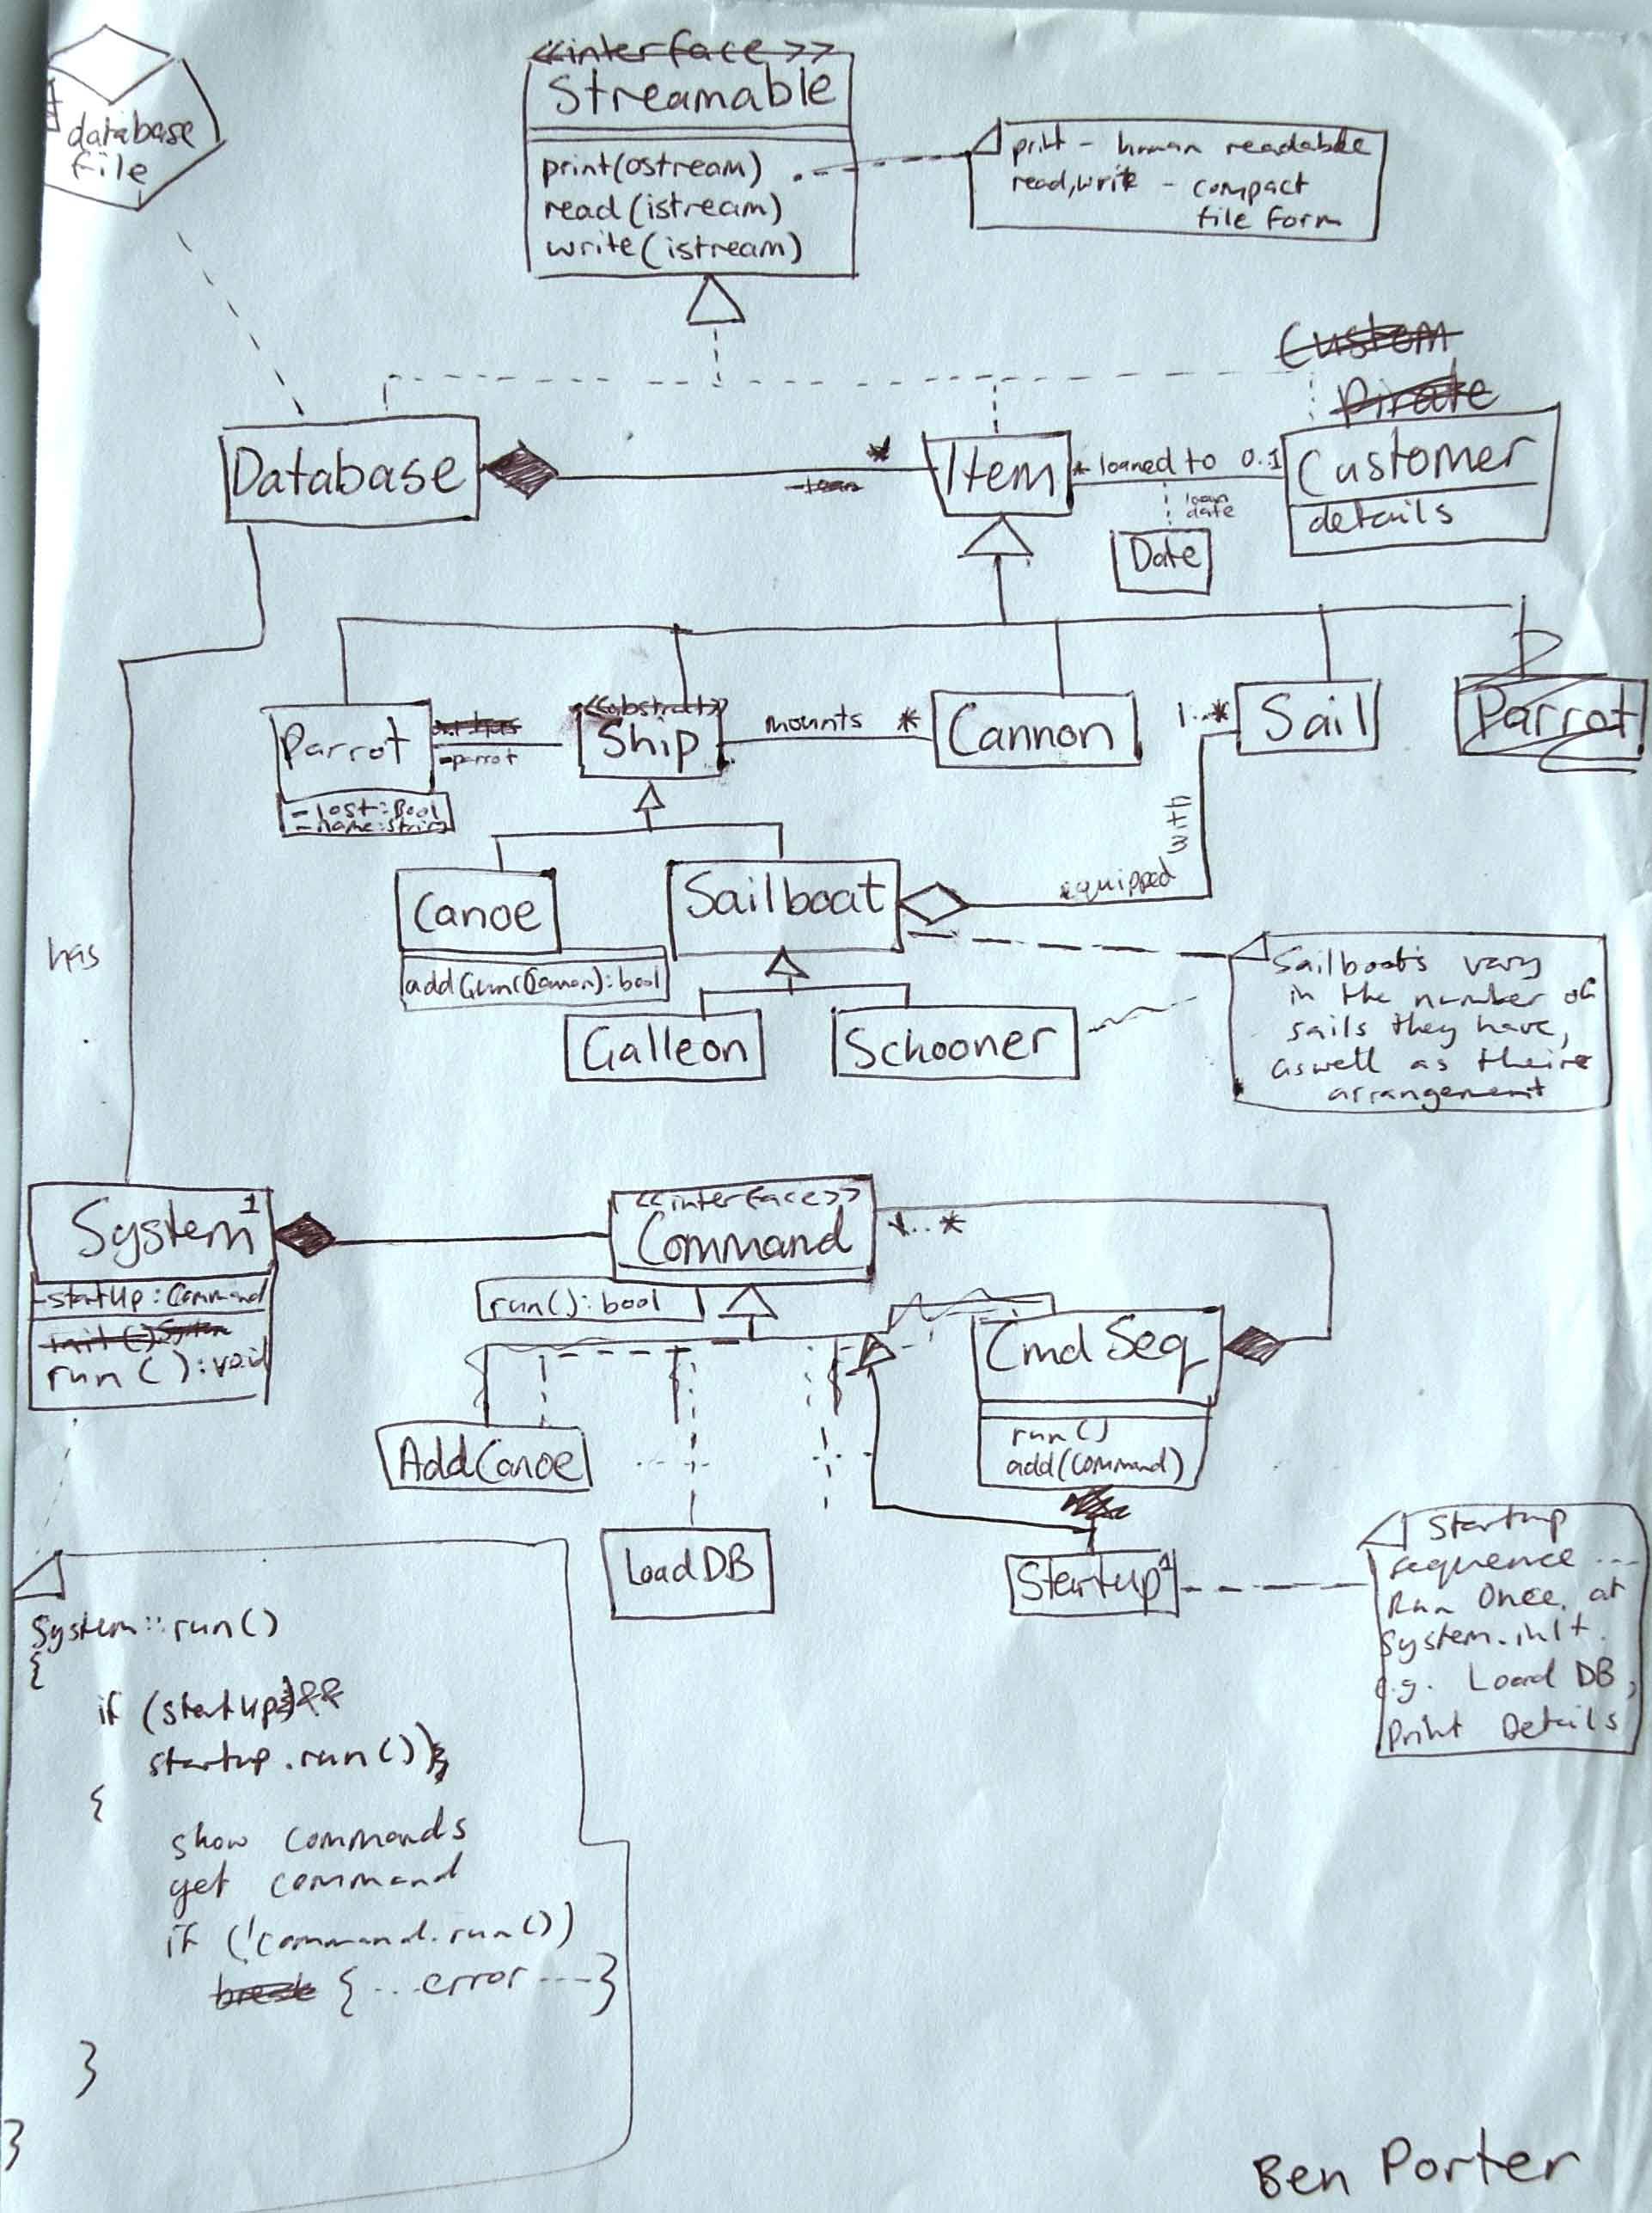 <<interface>>
Streamable
print(ostream)
read(istream)
write(istream)
print - human readable
read,write - compact
file form
database
file
Custom
Pirate
Database
*
Item
* loaned to 0.1
loan
date
Date
Customer
details
Parrot
-lost:Bool
-name:String
-parrot
<<abstract>>
Ship
mounts *
Cannon
1..*
Sail
Parrot
equipped with
Canoe
addGun(Canon):bool
Sailboat
Galleon
Schooner
Sailboats vary
in the number of
sails they have,
aswell as theire
arrangement
has
System 1
-startUp:Command
init():System
run():void
<<interface>>
Command
1..*
run():bool
CmdSeq
run()
add(command)
AddCanoe
LoadDB
Startup 1
Startup
sequence ...
Run Once, at
System.init.
e.g. Load DB,
Print Details
System::run()
{
if (startUp)&&
startup.run())
{
show commands
get command
if (!command.run())
break {...error ---}
}
}
Ben Porter